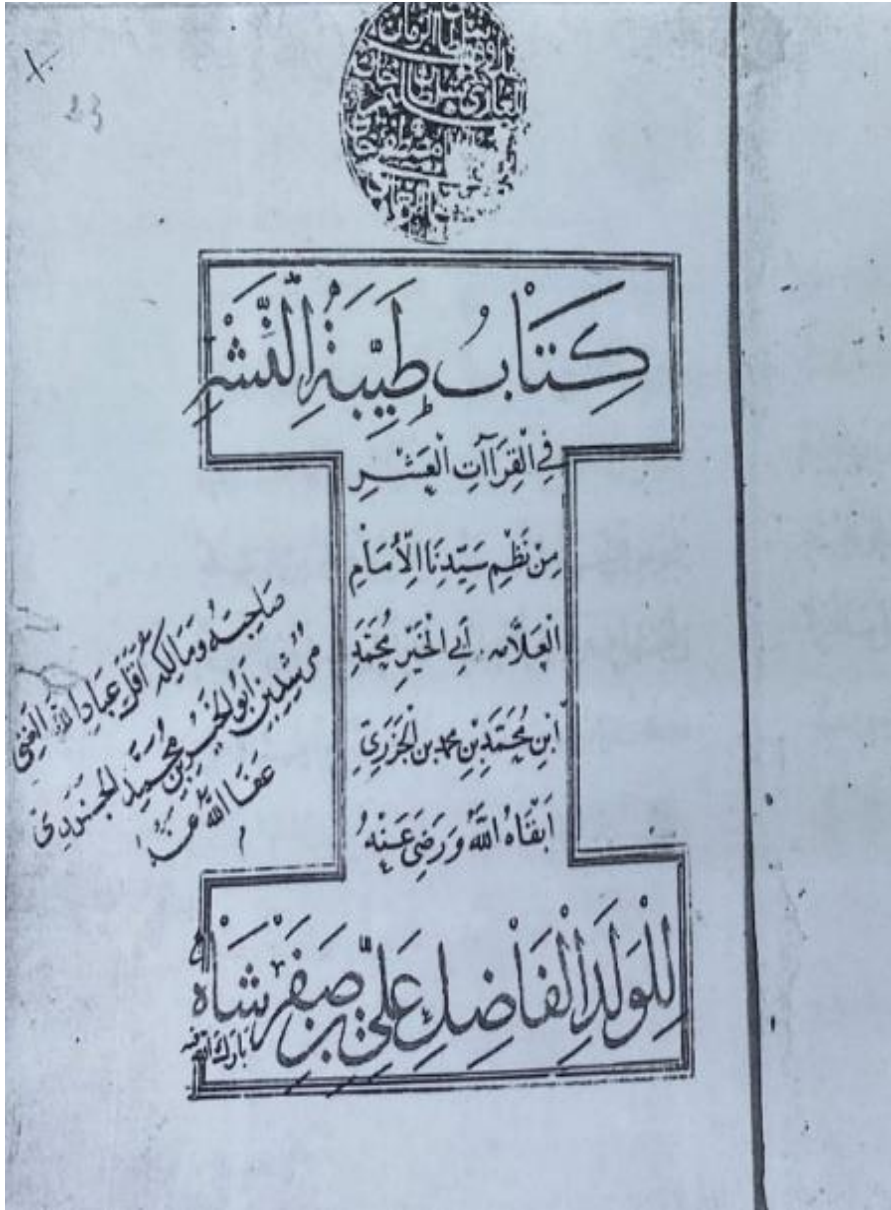 كِتَابُ طَيِّبَةِ النَّشْرِ
فِي الْقِرَاآتِ الْعَشْرِ
مِنْ نَظْمِ سَيِّدِنَا الْأِمَامِ
الْعَلَّامه أَبِي الْخَيْرِ مُحَمَّدِ
ابْنِ مُحَمَّدِ بْنِ محمد بن الْجَزَرِيِّ
اَبْقَاهُ اللهُ وَرَضِيَ عَنْهُ
لِلْوَلَدِ الْفَاضِلِ عَلِيِّ بن صَفَرْ شَاهْ
بَارَكَ الله فيه
صَاحِبُهُ وَمَالِكُه أَقَلُّ عِبَادِ اللهِ الْغَنِي
بن أبو الْخَيْر بن مُحَمَّد
عَفَا اللهُ عَنْهُ